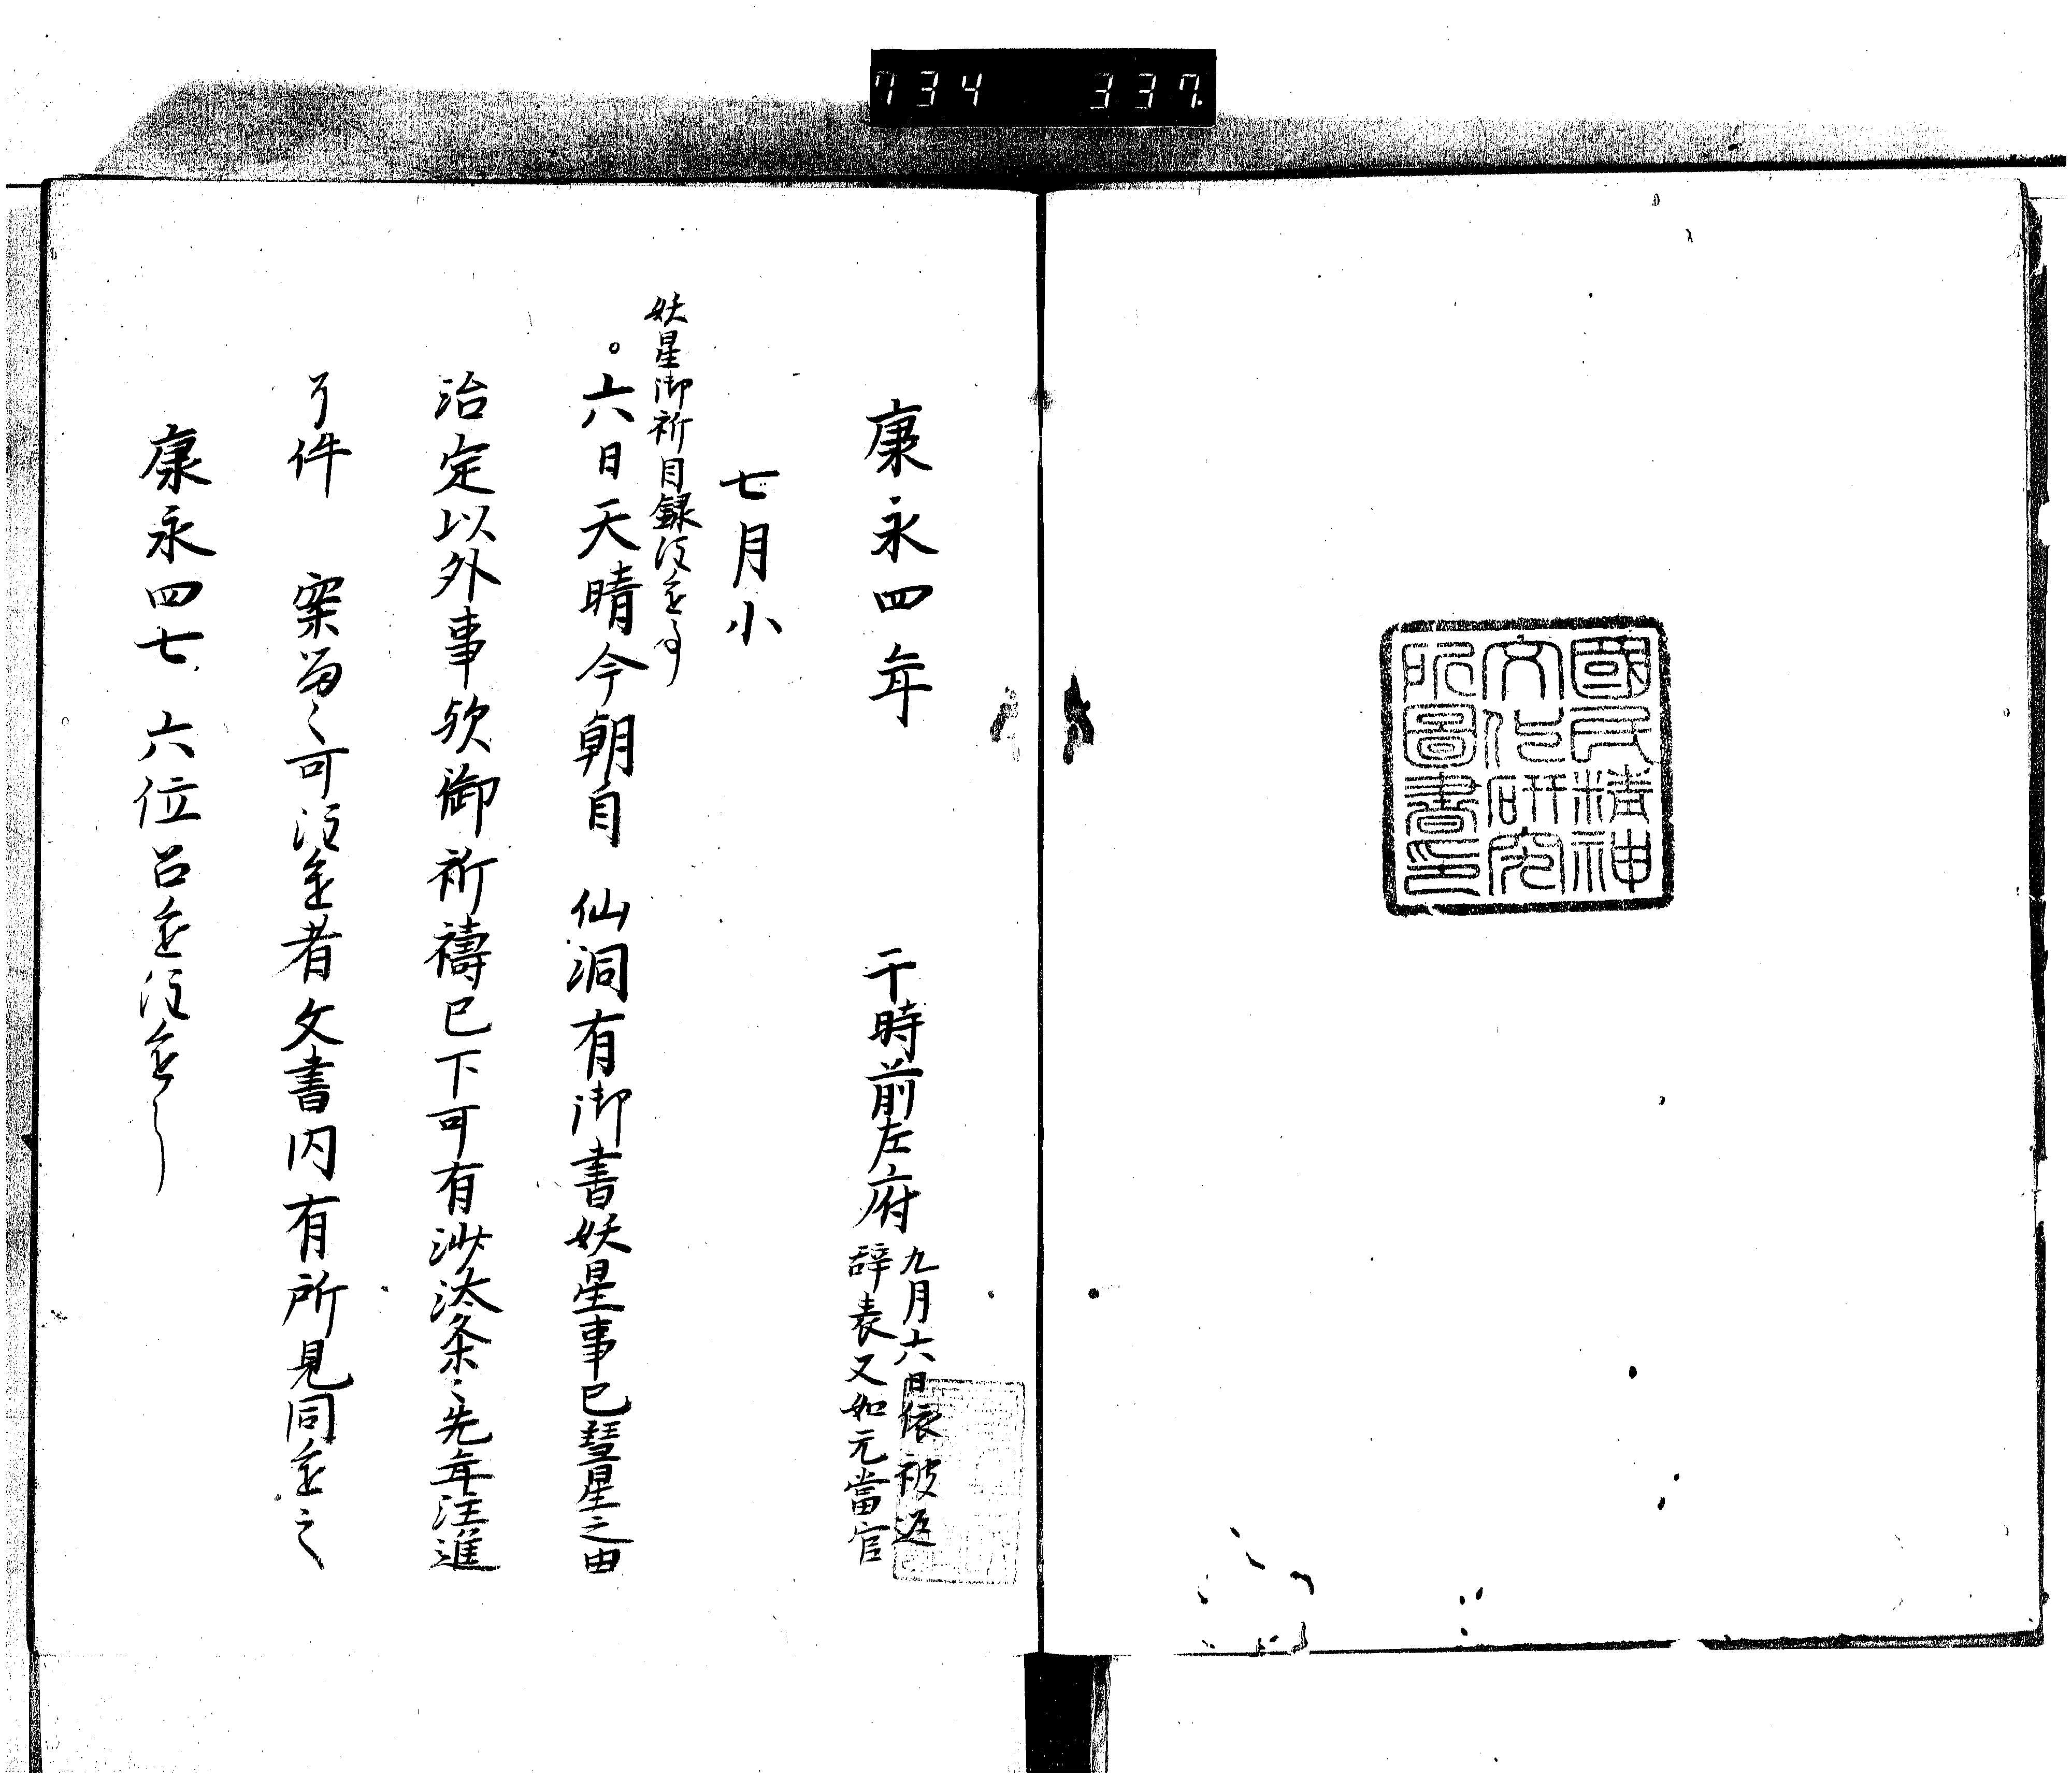 734 337
國民精神
文化研究
所圖書印
康永四年 于時前左府 九月六日依被返
辞表又如元當官
七月小
妖星御祈目録注進事
。六日天晴今朝自 仙洞有御書妖星事已彗星之由
治定以外事欤御祈禱已下可有沙汰条〻先年注進
了件 案多〻可注進者文書内有所見同進之
康永四七 六位召進注進